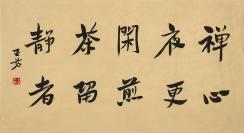 禅心
夜更
闲煎
茶留
静者
王芳